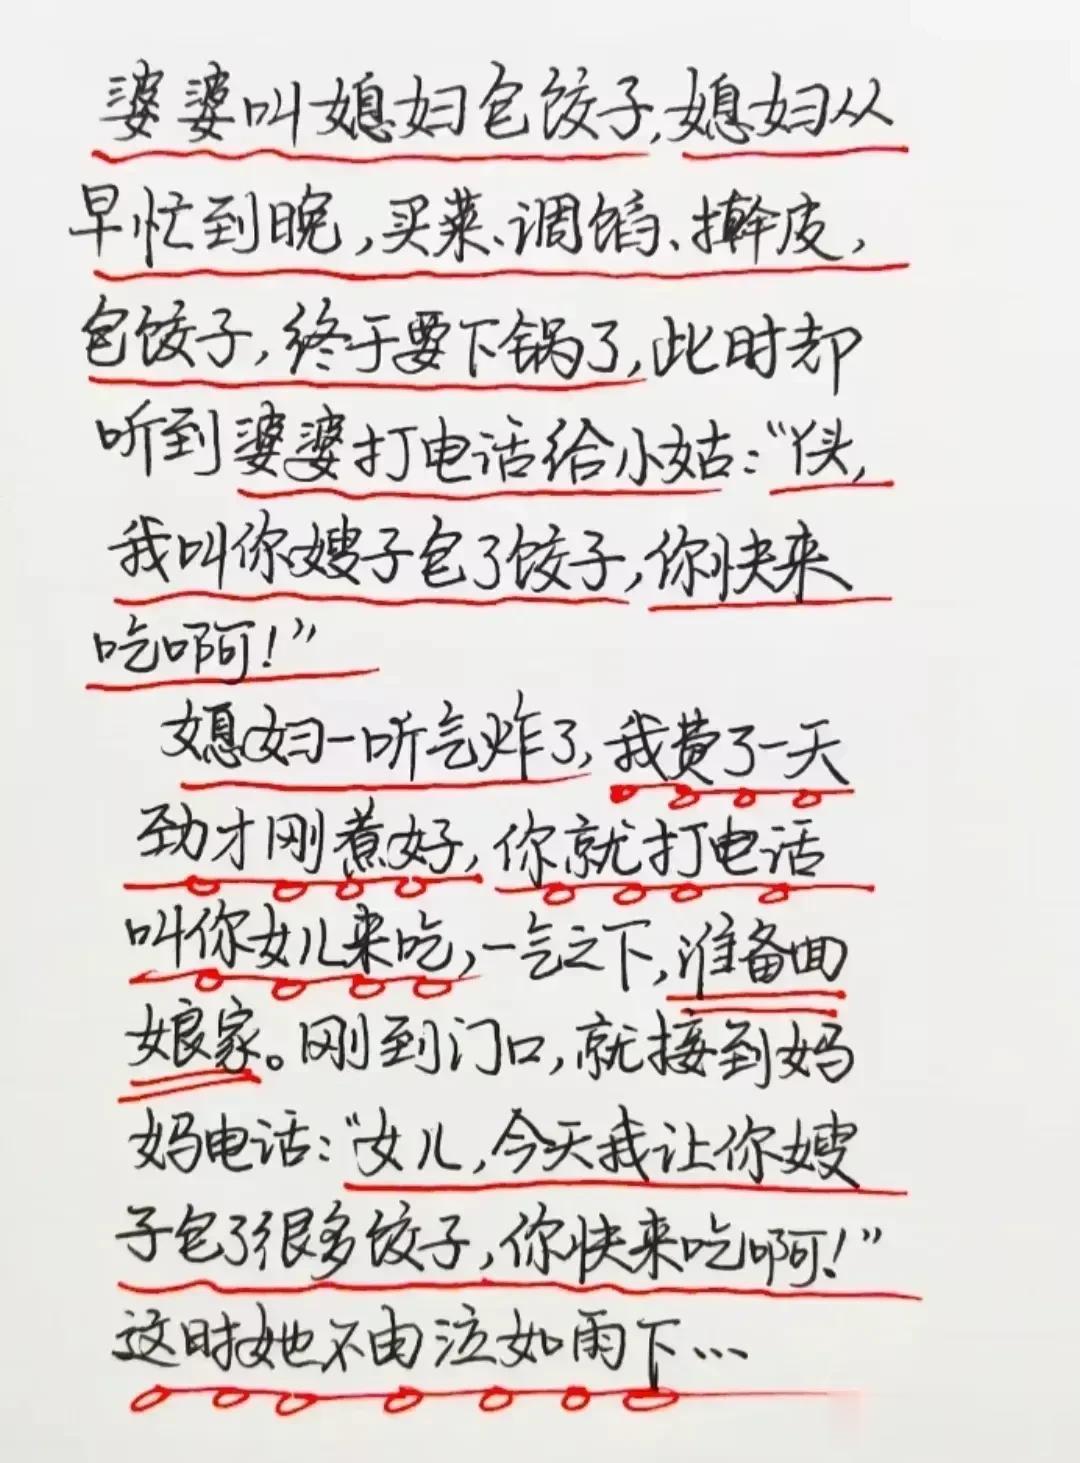 婆婆叫媳妇包饺子,媳妇从
早忙到晚,买菜、调馅、擀皮,
包饺子,终于要下锅了,此时却
听到婆婆打电话给小姑:“丫头,
我叫你嫂子包了饺子,你快来
吃啊!”
媳妇一听气炸了,我费了一天
劲才刚煮好,你就打电话
叫你女儿来吃,一气之下,准备回
娘家。刚到门口,就接到妈
妈电话:“女儿,今天我让你嫂
子包了很多饺子,你快来吃啊!”
这时她不由泣如雨下…